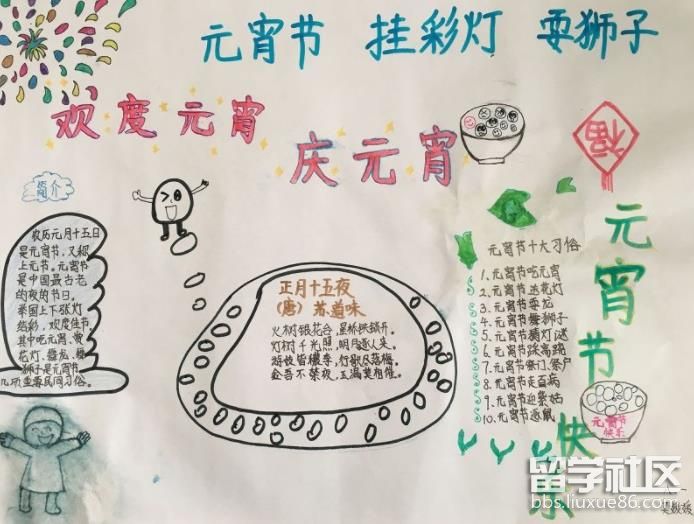 元宵节 挂彩灯 耍狮子
欢度元宵
庆元宵
福
简介
农历元月十五日
是元宵节,又称
上元节。元宵节
是中国最古老
的夜的节日。
举国上下张灯
结彩,欢度佳节。
其中吃元宵、赏
花灯、舞龙、舞
狮子是元宵节
几项重要民间习俗。
正月十五夜
(唐) 苏道味
火树银花合,星桥铁锁开。
灯树千光照,明月逐人来。
游妓皆穠李,行歌尽落梅。
金吾不禁夜,玉漏莫相催。
元宵节十大习俗
1.元宵节吃元宵
2.元宵节送花灯
3.元宵节耍龙
4.元宵节舞狮子
5.元宵节猜灯谜
6.元宵节踩高跷
7.元宵节祭门、祭户
8.元宵节走百病
9.元宵节迎紫姑
10.元宵节逐鼠
元宵节快乐
元宵节
快乐
留学社区
bbs.liuxue86.com